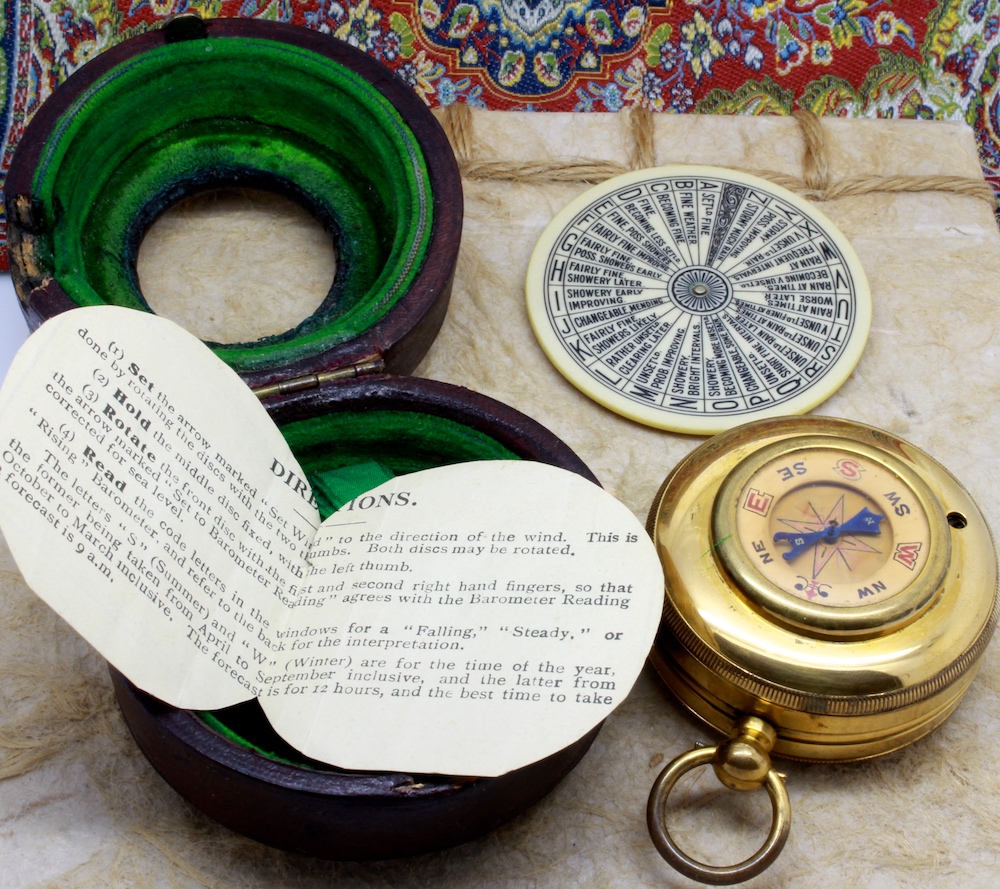 DIRECTIONS.
(1) Set the arrow marked "Set Wind" to the direction of the wind. This is
done by rotating the discs with the two thumbs. Both discs may be rotated.
(2) Hold the middle disc fixed, with the left thumb.
(3) Rotate the front disc with the first and second right hand fingers, so that
the arrow marked "Set to Barometer Reading" agrees with the Barometer Reading
corrected for sea level.
(4) Read the code letters in the windows for a "Falling," "Steady," or
"Rising" Barometer, and refer to the back for the interpretation.
The letters "S" (Summer) and "W" (Winter) are for the time of the year,
the former being taken from April to September inclusive, and the latter from
October to March inclusive. The forecast is for 12 hours, and the best time to take
forecast is 9 a.m.
A SETLD FINE
B FINE WEATHER
C BECOMING FINE
D FINE BECOMING LESS SETLD
E FINE, POSS. SHOWERS
F FAIRLY FINE IMPROVING
G FAIRLY FINE, POSS. SHOWERS EARLY
H FAIRLY FINE SHOWERY LATER
I SHOWERY EARLY IMPROVING
J CHANGEABLE MENDING
K FAIRLY FINE SHOWERS LIKELY
L RATHER UNSETLD CLEARING LATER
M UNSETLD PROB. IMPROVING
N SHOWERY, BRIGHT INTERVALS
O SHOWERY BECOMING MORE UNSETLD
P CHANGEABLE SOME RAIN
Q UNSETLD SHORT FINE INTERVALS
R UNSETLD RAIN LATER
S UNSETLD RAIN AT TIMES
T V.UNSETLD FINER AT TIMES
U RAIN AT TIMES WORSE LATER
V RAIN AT TIMES BECOMING V.UNSETLD
W RAIN AT FREQUENT INTERVALS
X V.UNSETLD RAIN
Y STORMY POSS. IMPROVING
Z STORMY MUCH RAIN
S
SW
W
NW
NE
E
SE
N
S